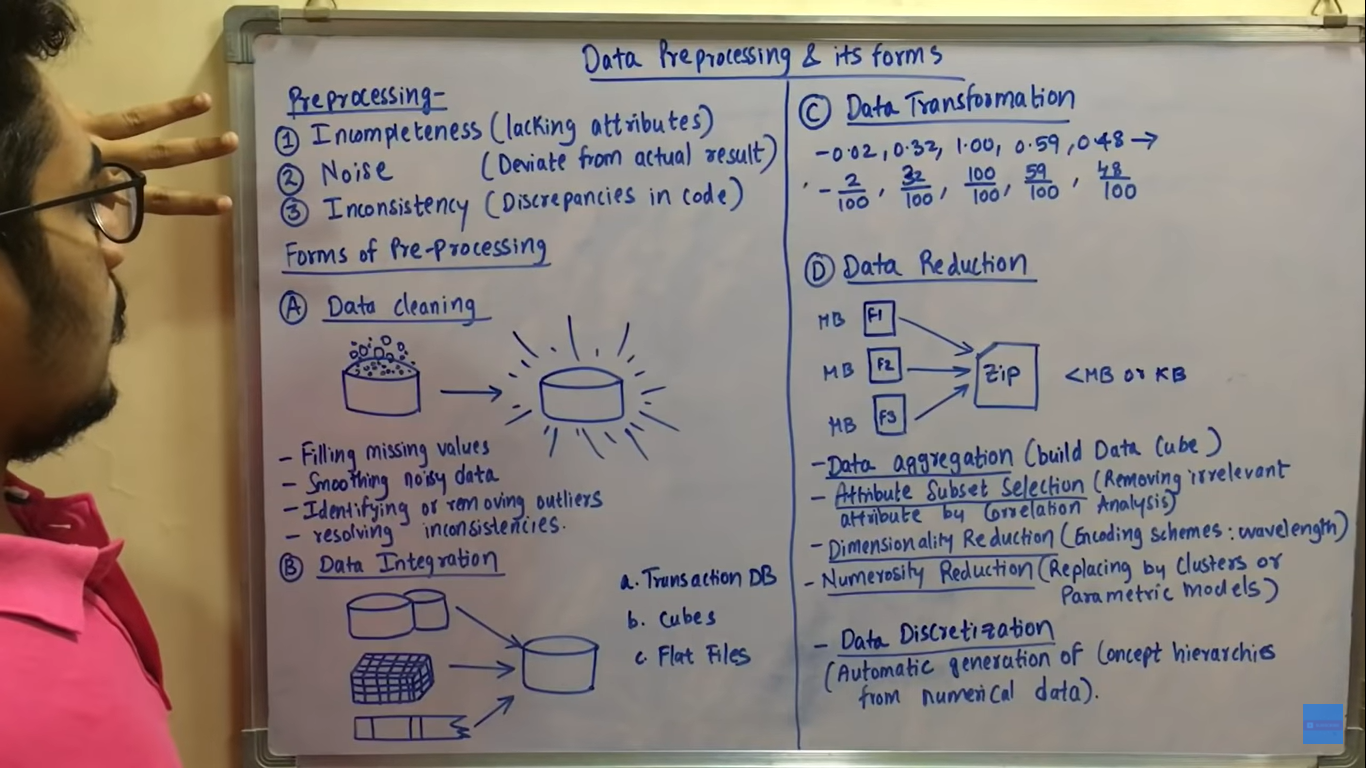 Data Preprocessing & its forms
Preprocessing-
① Incompleteness (lacking attributes)
② Noise (Deviate from actual result)
③ Inconsistency (Discrepancies in code)
Forms of Pre-Processing
Ⓐ Data cleaning
- Filling missing values
- Smoothing noisy data
- Identifying or removing outliers
- resolving inconsistencies.
Ⓑ Data Integration
a. Transaction DB
b. Cubes
c. Flat Files
Ⓒ Data Transformation
-0.02, 0.32, 1.00, 0.59, 0.48 →
-2/100, 32/100, 100/100, 59/100, 48/100
Ⓓ Data Reduction
MB F1
MB F2
MB F3
Zip <MB or KB
- Data aggregation (build Data Cube)
- Attribute Subset Selection (Removing irrelevant
attribute by Correlation Analysis)
- Dimensionality Reduction (Encoding schemes: wavelength)
- Numerosity Reduction (Replacing by Clusters or
Parametric models)
- Data Discretization
(Automatic generation of Concept hierarchies
from numerical data).